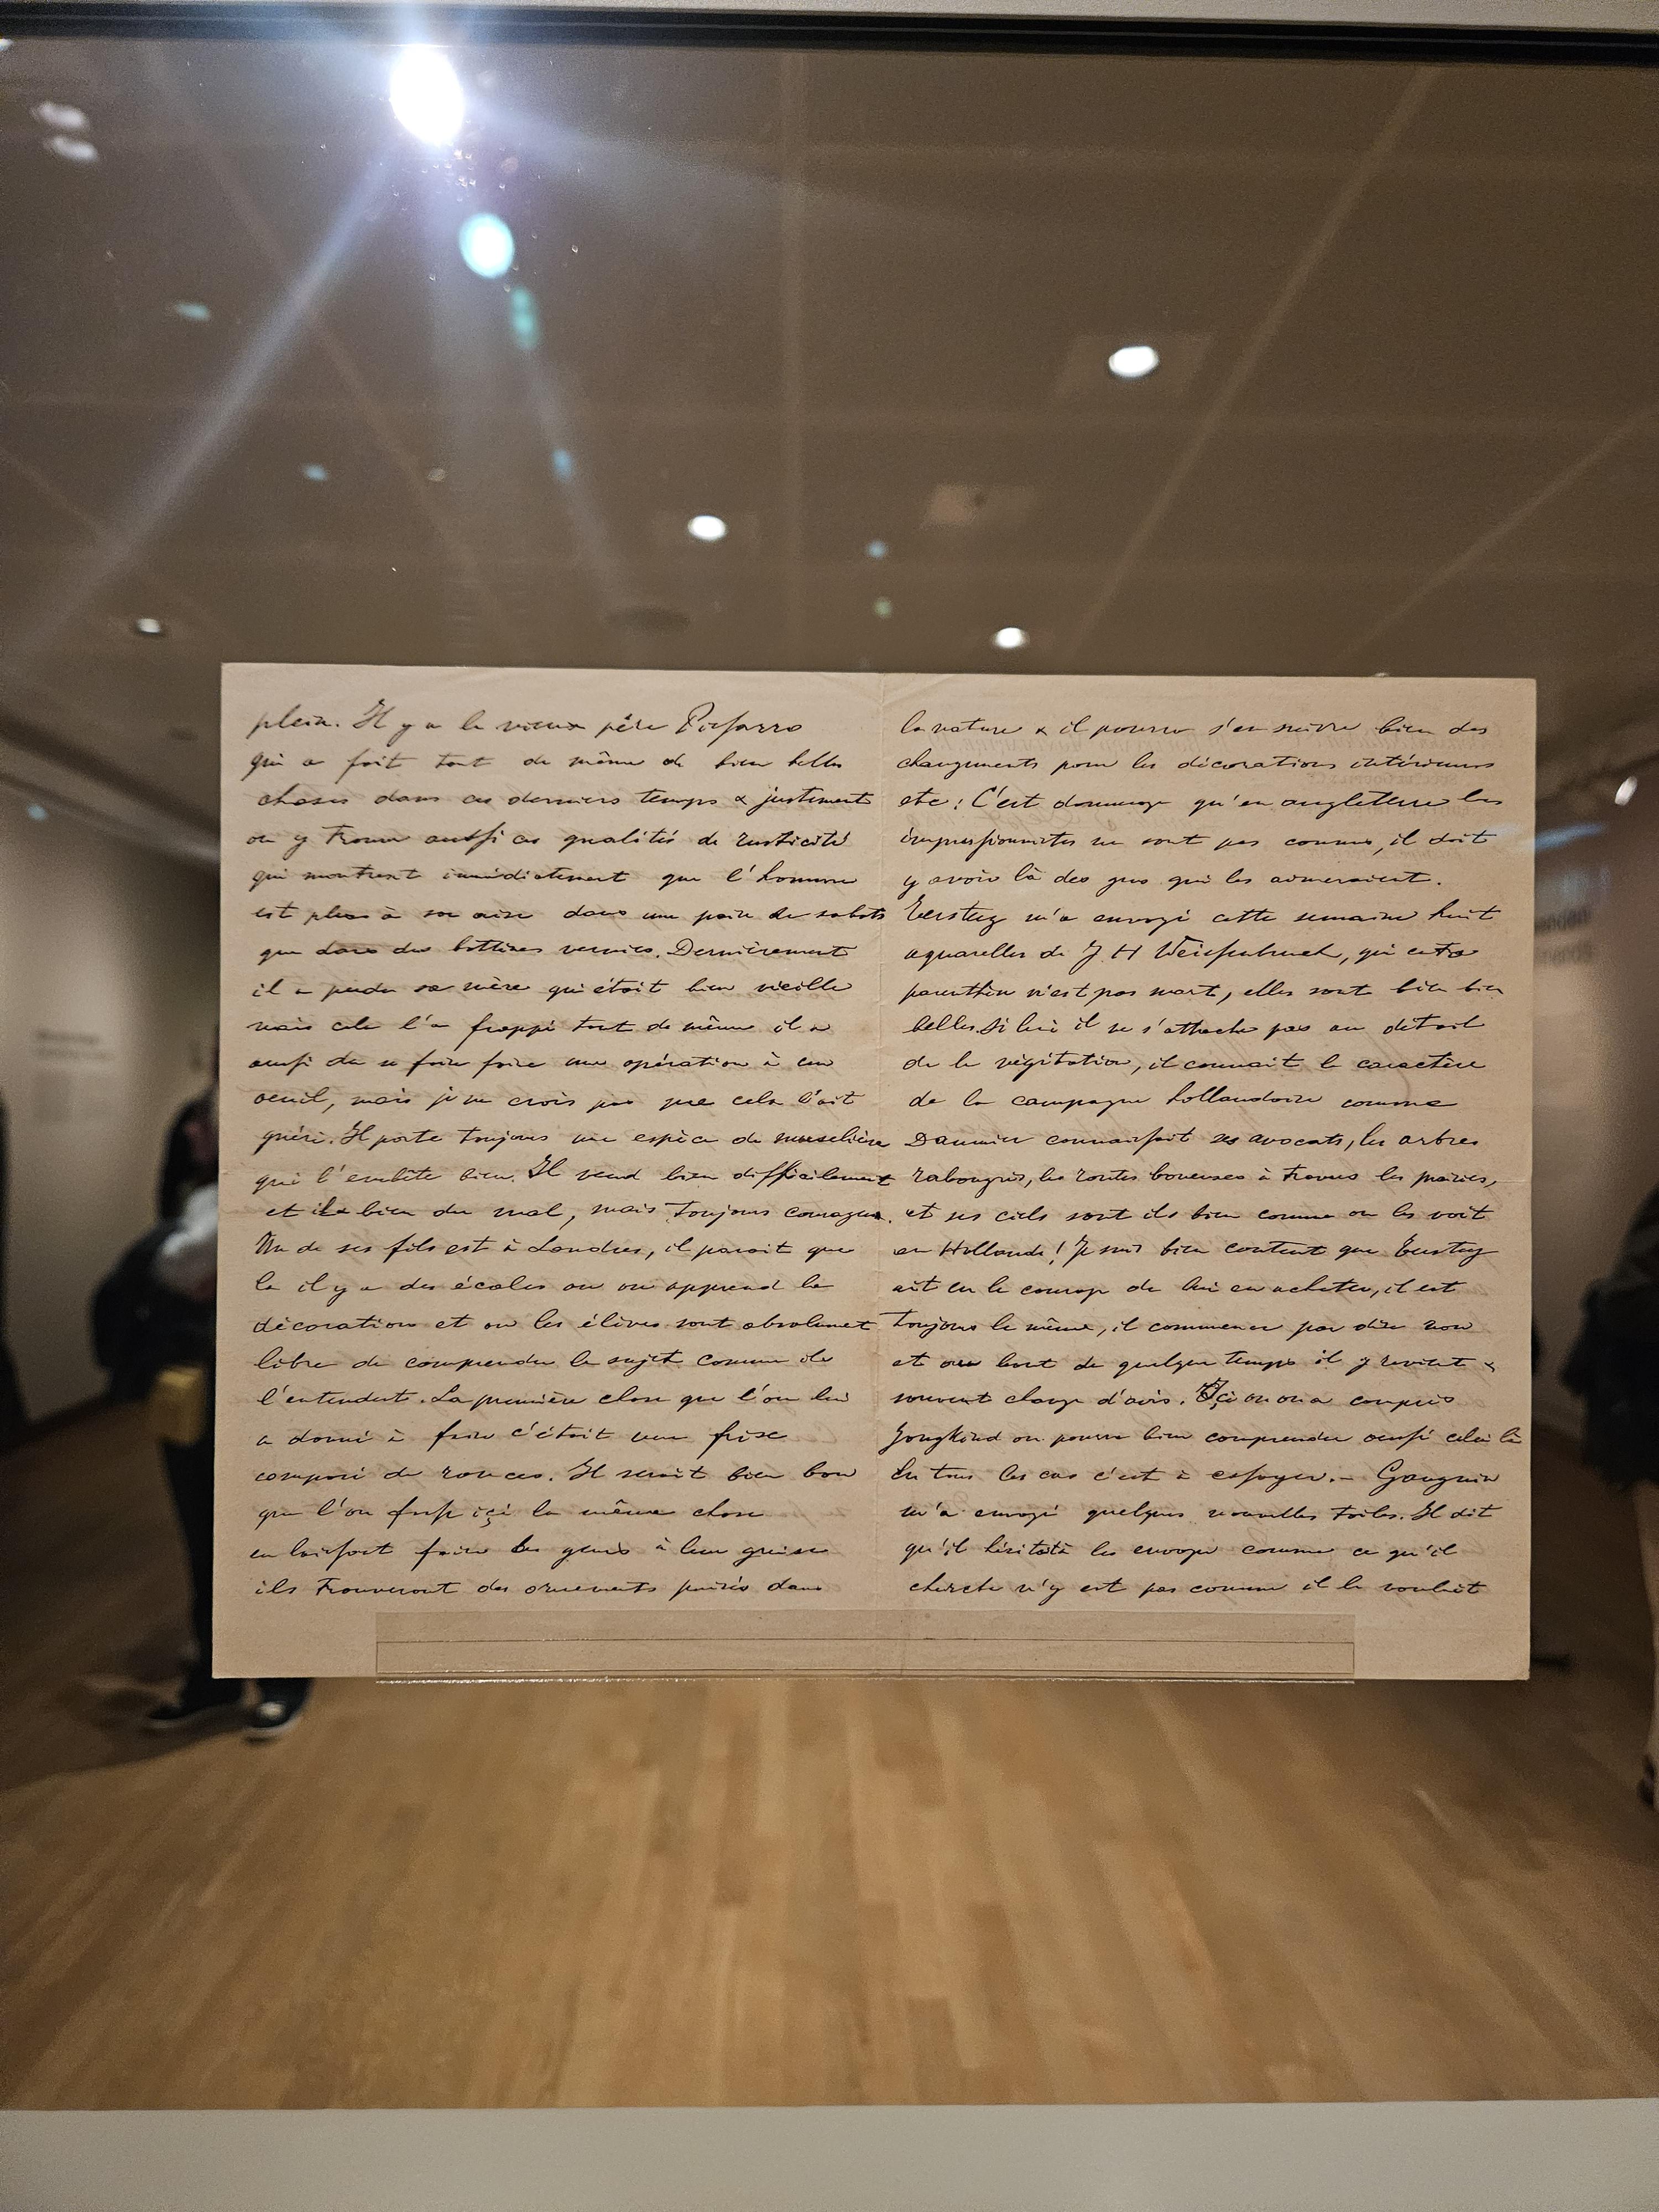 plein. Il y a le vieux père Pissarro
qui a fait tout de même de bien belles
choses dans ces derniers temps & justement
on y trouve aussi ces qualités de rusticité
qui montrent immédiatement que l'homme
est plus à son aise dans une paire de sabots
que dans des bottines vernies. Dernièrement
il a perdu sa mère qui était bien vieille
mais cela l'a frappé tout de même il a
aussi du se faire faire une opération à un
oeuil, mais je ne crois pas que cela l'ait
guéri. Il porte toujours une espèce de muselière
qui l'embête bien. Il vend bien difficilement
et il a bien du mal, mais toujours courageux.
Un de ses fils est à Londres, il parait que
la il y a des écoles ou on apprend la
décoration et ou les élèves sont absolument
libre de comprendre le sujet comme ils
l'entendent. La première chose que l'on lui
a donné à faire c'était une frise
composé de ronces. Il serait bien bon
que l'on fasse içi la même chose
en laissant faire les gens à leur guise
ils trouveront des ornements puisés dans
la nature & il pourra s'en suivre bien des
changements pour les décorations intérieures
etc: C'est dommage qu'en angleterre les
impressionnistes ne sont pas connus, il doit
y avoir là des gens qui les aimeraient.
Tersteeg m'a envoyé cette semaine huit
aquarelles de J H Weissenbruch, qui entre
parenthèse n'est pas mort, elles sont bien bien
belles. Si lui il ne s'attache pas au détail
de la végétation, il connait le caractère
de la campagne hollandaise comme
Daumier connaissait ses avocats, les arbres
rabougris, les routes boueuses à travers les prairies,
et ses ciels sont ils bien comme on les voit
en Hollande! Je suis bien content que Tersteeg
ait eu le courage de lui en acheter, il est
toujours le même, il commence par dire non
et au bout de quelque temps il y revient &
souvent change d'avis. Içi on a compris
Jongkind on pourra bien comprendre aussi celui là
En tous les cas c'est à essayer. – Gauguin
m'a envoyé quelques nouvelles toiles. Il dit
qu'il hésitait à les envoyer comme ce qu'il
cherche n'y est pas comme il le voulait